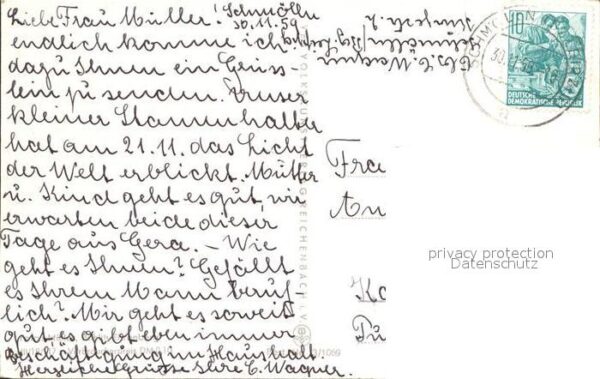 Liebe Frau Müller!
Schmölln
30.11.59
endlich komme ich
dazu Ihnen ein Grüss-
lein zu senden. Unser
kleiner Stammhalter
hat am 21.11. das Licht
der Welt erblickt. Mutter
u. Kind geht es gut, wir
erwarten beide dieser
Tage aus Gera. – Wie
geht es Ihnen? Gefällt
es Ihrem Mann beruf-
lich? Mir geht es soweit
gut, es gibt eben immer
Beschäftigung im Haushalt.
Herzliche Grüsse Ihre E. Wagner.
Abs. E. Wagner
Schmölln
VOLKSKUNSTVERLAG REICHENBACH i. V.
10
DEUTSCHE
DEMOKRATISCHE REPUBLIK
SCHMÖLLN
Fra
An
privacy protection
Datenschutz